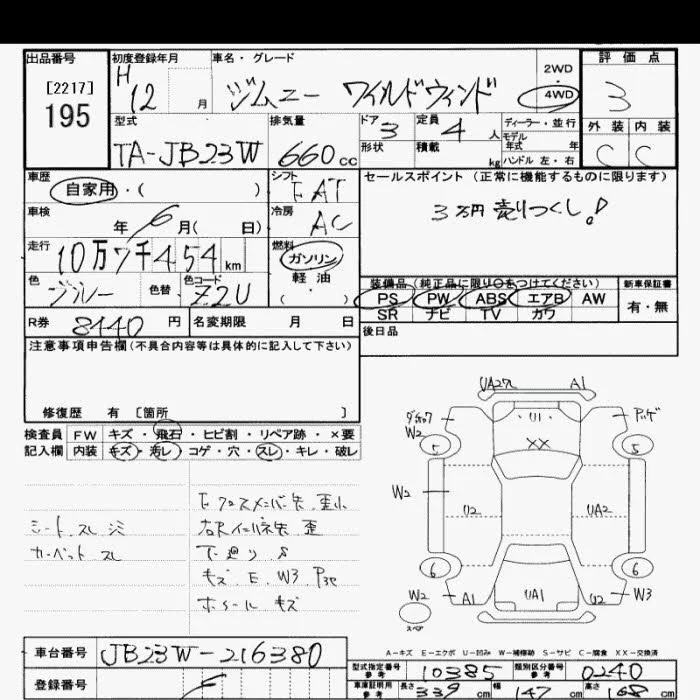 出品番号 初度登録年月 車名・グレード 評価点
[2217] H 2WD
195 12 月 ジムニー ワイルドウィンド 4WD 3
型式 排気量 ドア 3 定員 4 人 ディーラー・並行 外装 内装
TA-JB23W 660 cc 形状 積載 kg モデル年式 年 C C
ハンドル 左・右
車歴 シフト セールスポイント (正常に機能するものに限ります)
自家用・( ) F AT 3万円 売りつくし!
車検 冷房
年 6 月( 日) AC
走行 燃料
10万7千454 km ガソリン
色 色替 色コード 軽油
Z2U ( ・ )
装備品 (純正品に限り○をつけてください) 新車保証書
PS PW ABS エアB AW 有・無
SR ナビ TV カワ
R券 8140 円 名変期限 月 日 後日品
注意事項申告欄(不具合内容等は具体的に記入して下さい)
修復歴 有 [箇所 ]
検査員 FW キズ・飛石・ヒビ割・リペア跡・×要
記入欄 内装 キズ・汚レ・コゲ・穴・スレ・キレ・破レ
シート スレ シミ
カーペット スレ
下廻り S
キズ. E. W3
ホイール キズ
A1
U1
W2
XX
5 5
W2 U2 UA2
6 6
W2 A1 UA1 U2 W3
スペア
A-キズ E-エクボ U-凹み W-補修跡 S-サビ C-腐食 XX-交換済
車台番号 JB23W-216380
登録番号
型式指定番号 参考 10385 類別区分番号 参考 0240
車庫証明用 参考 長さ 339 cm 幅 147 cm 高さ 168 cm